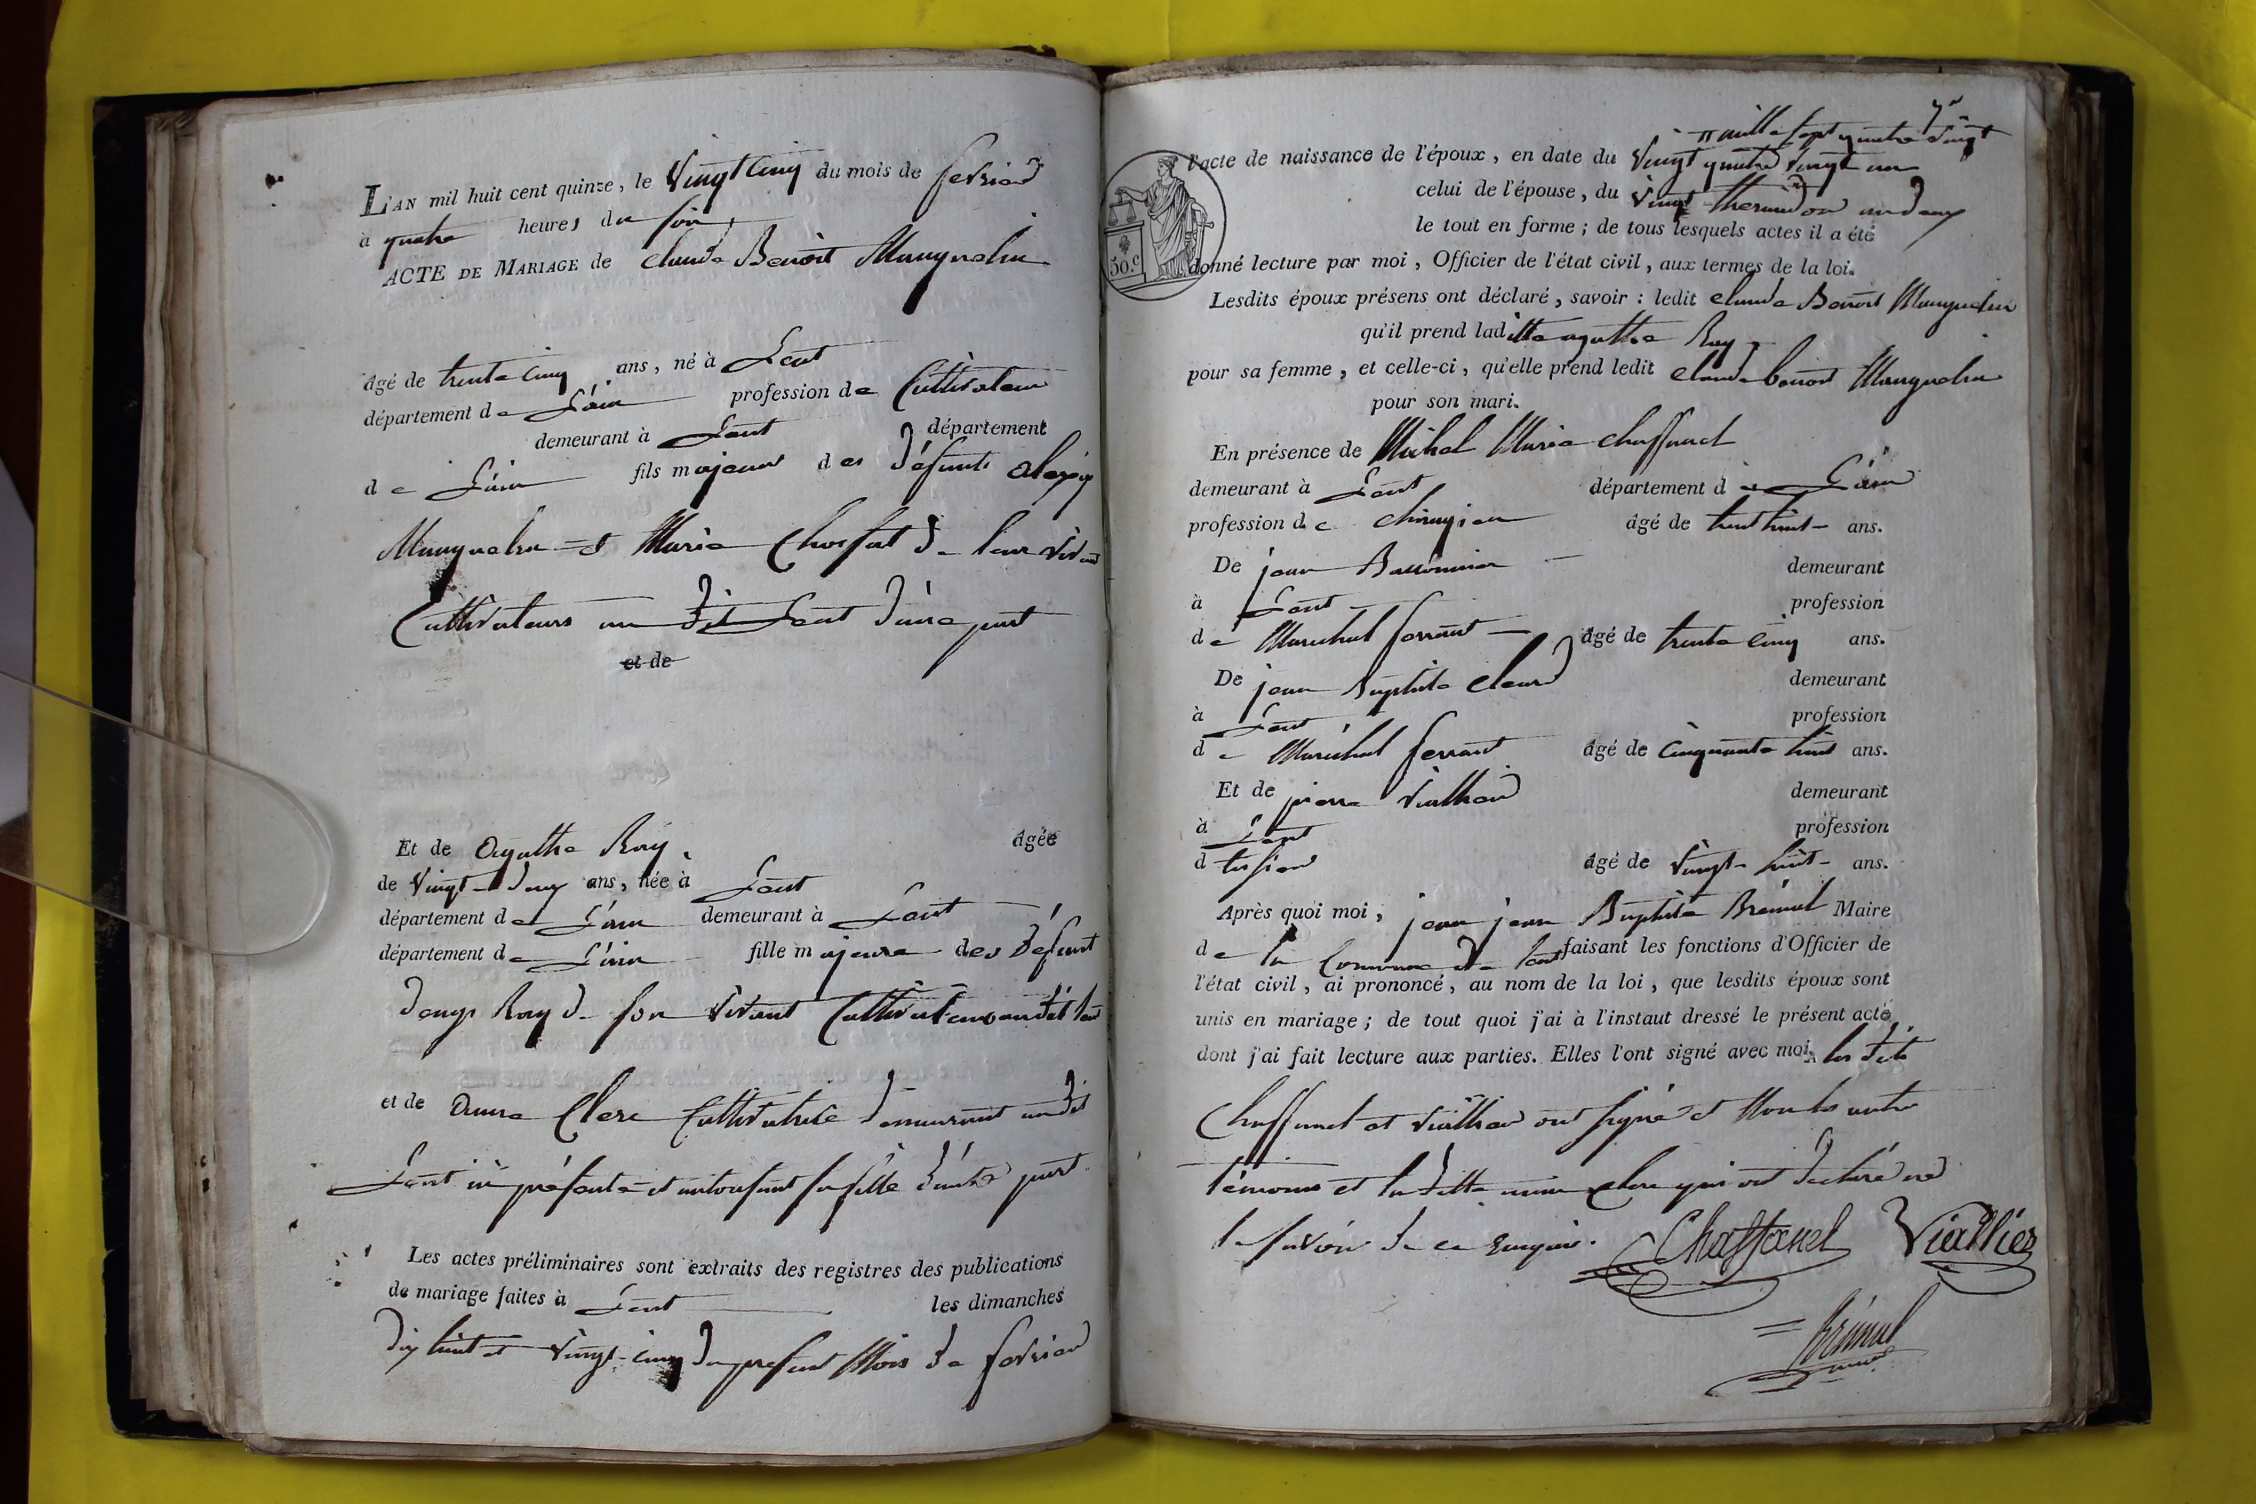 L'AN mil huit cent quinze, le vingt cinq du mois de fevrier
à quatre heures du soir
ACTE DE MARIAGE de claude Benoit Manguelin
âgé de trente cinq ans, né à Lent
département de L'ain profession de Cultivateur
demeurant à Lent département
de L'ain fils majeur des défunts alexis
Manguelin et Marie Chosfat de leur vivant
Cultivateurs au dit Lent d'une part
et de
Et de agathe Roy âgée
de vingt deux ans, née à Lent
département de L'ain demeurant à Lent
département de L'ain fille majeure des défunt
denys Roy de son vivant Cultivateur au dit Lent
et de anne Clerc Cultivatrice demeurant au dit
Lent ici présente et autorisant sa fille d'autre part
Les actes préliminaires sont extraits des registres des publications
de mariage faites à Lent les dimanches
dix huit et vingt-cinq du present Mois de fevrier
mille sept quatre vingt
l'acte de naissance de l'époux, en date du vingt quatre vingt un
celui de l'épouse, du vingt thermidor an deux
le tout en forme; de tous lesquels actes il a été
50.c donné lecture par moi, Officier de l'état civil, aux termes de la loi.
Lesdits époux présens ont déclaré, savoir: ledit claude Benoit Manguelin
qu'il prend laditte agathe Roy
pour sa femme, et celle-ci, qu'elle prend ledit claude benoit Manguelin
pour son mari.
En présence de Michel Marie chaffanel
demeurant à Lent département de L'ain
profession de chirugien âgé de trent huit ans.
De jean demeurant
à Lent profession
de Marechal ferrant âgé de trente cinq ans.
De jean Baptiste Clerc demeurant
à Lent profession
de Maréchal ferrant âgé de cinquante huit ans.
Et de pierre viallier demeurant
à Lent profession
d tissier âgé de vingt-huit ans.
Après quoi moi, jean jean Baptiste Brémal Maire
de la Commune de Lent faisant les fonctions d'Officier de
l'état civil, ai prononcé, au nom de la loi, que lesdits époux sont
unis en mariage; de tout quoi j'ai à l'instaut dressé le présent acte
dont j'ai fait lecture aux parties. Elles l'ont signé avec moi, les dits
Chaffanel et viallier ont signé et Non les autres
témoins et la ditte anne clerc qui ont déclaré ne
le savoir de ce enquis.
Chaffanel Viallier
Brémal
maire